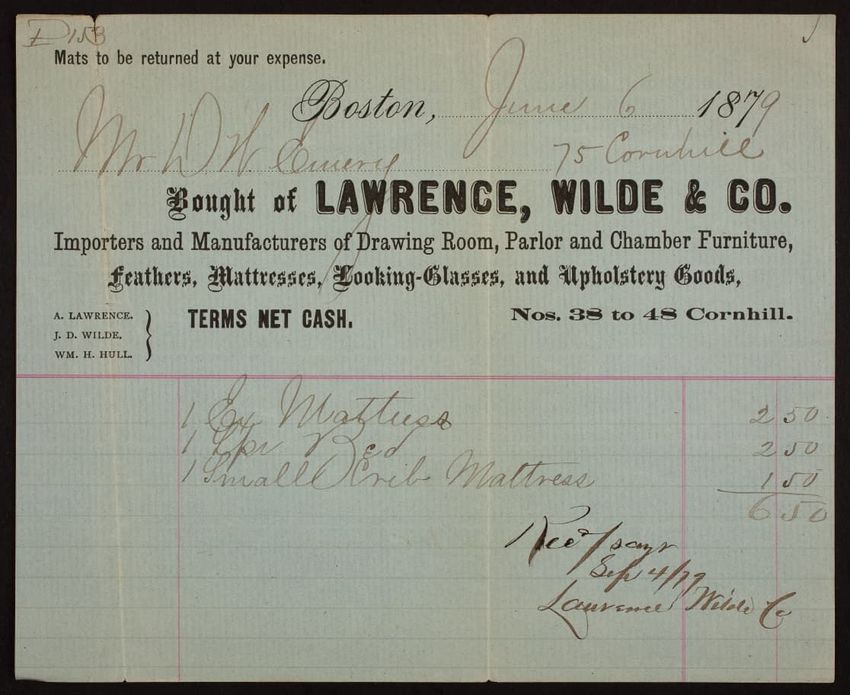 D 153
Mats to be returned at your expense.
Boston, June 6 1879
Mr D W Emery 75 Cornhill
Bought of LAWRENCE, WILDE & CO.
Importers and Manufacturers of Drawing Room, Parlor and Chamber Furniture,
Feathers, Mattresses, Looking-Glasses, and Upholstery Goods,
A. LAWRENCE.
J. D. WILDE.
WM. H. HULL.
TERMS NET CASH.
Nos. 38 to 48 Cornhill.
1 Ex Mattress 2 50
1 Spr Bed 2 50
1 Small Crib Mattress 1 50
6 50
Recd
Sep 4/79
Lawrence Wilde Co